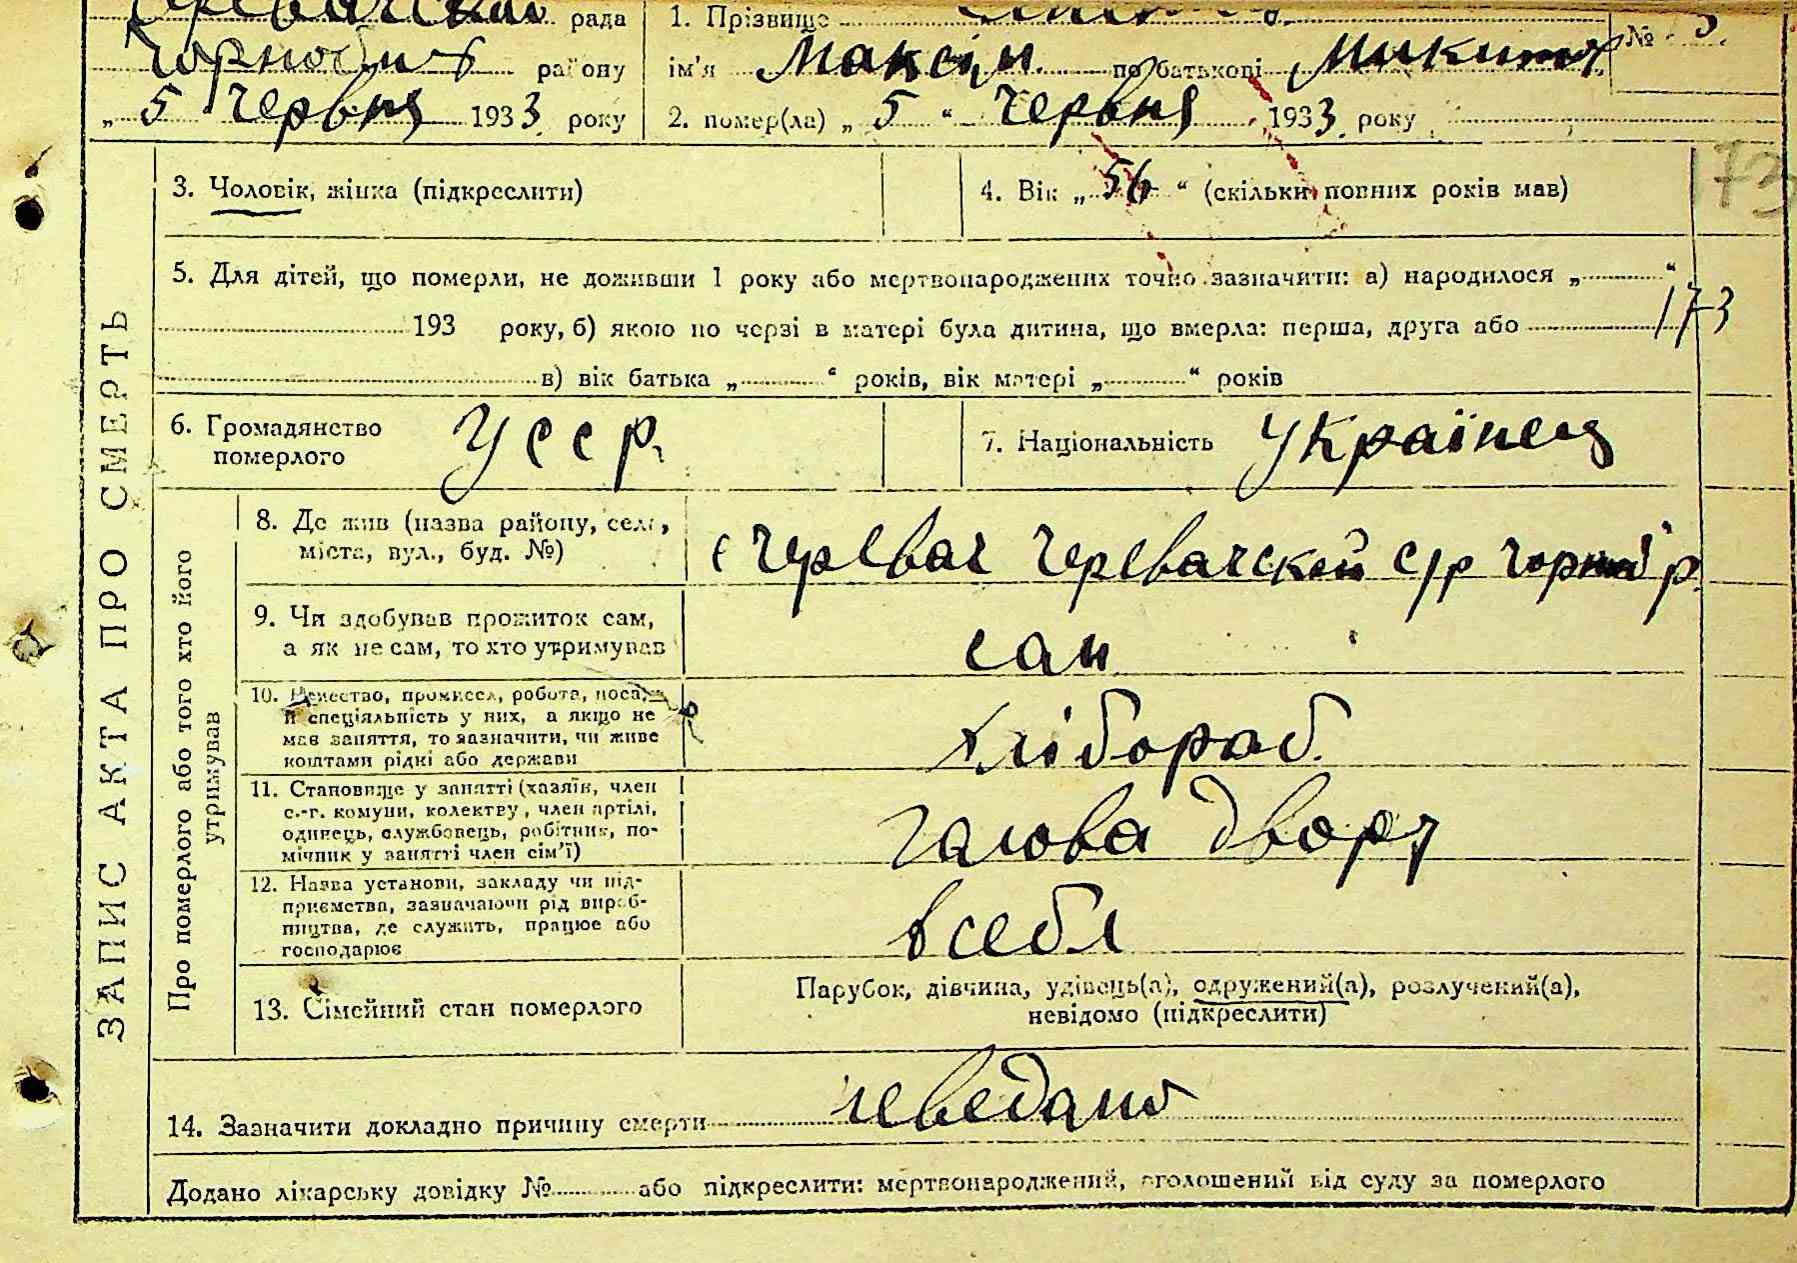 рада 1. Прізвище
Чорнобил району ім'я Максім по батькові Микитов №
„ 5 Червня 1933 року 2. помер(ла) „ 5 “ Червня 1933 року
3. Чоловік, жінка (підкреслити) 4. Вік „ 56 “ (скільки повних років мав)
173
5. Для дітей, що померли, не доживши 1 року або мертвонароджених точно зазначити: а) народилося „ “
193 року, б) якою по черзі в матері була дитина, що вмерла: перша, друга або
173
в) вік батька „ “ років, вік матері „ “ років
6. Громадянство померлого Усср. 7. Національність Українец
ЗАПИС АКТА ПРО СМЕРТЬ
Про померлого або того хто його утримував
8. Де жив (назва району, села,
міста, вул., буд. №)
с Черевач Черевачской с/р Чорн р.
9. Чи здобував прожиток сам,
а як не сам, то хто утримував
сам
10. Ремество, промисел, робота, посада
й спеціяльність у них, а якщо не
мав заняття, то зазначити, чи живе
коштами рідні або держави
хлібораб.
11. Становище у занятті (хазяїн, член
с.-г. комуни, колектву, член артілі,
одинець, службовець, робітник, по-
мічник у занятті член сім'ї)
галова двору
12. Назва установи, закладу чи під-
приємства, зазначаючи рід вироб-
ництва, де служить, працює або
господарює
в себя
13. Сімейний стан померлого
Парубок, дівчина, удівець(а), одружений(а), розлучений(а),
невідомо (підкреслити)
14. Зазначити докладно причину смерти неведано
Додано лікарську довідку № або підкреслити: мертвонароджений, оголошений від суду за померлого